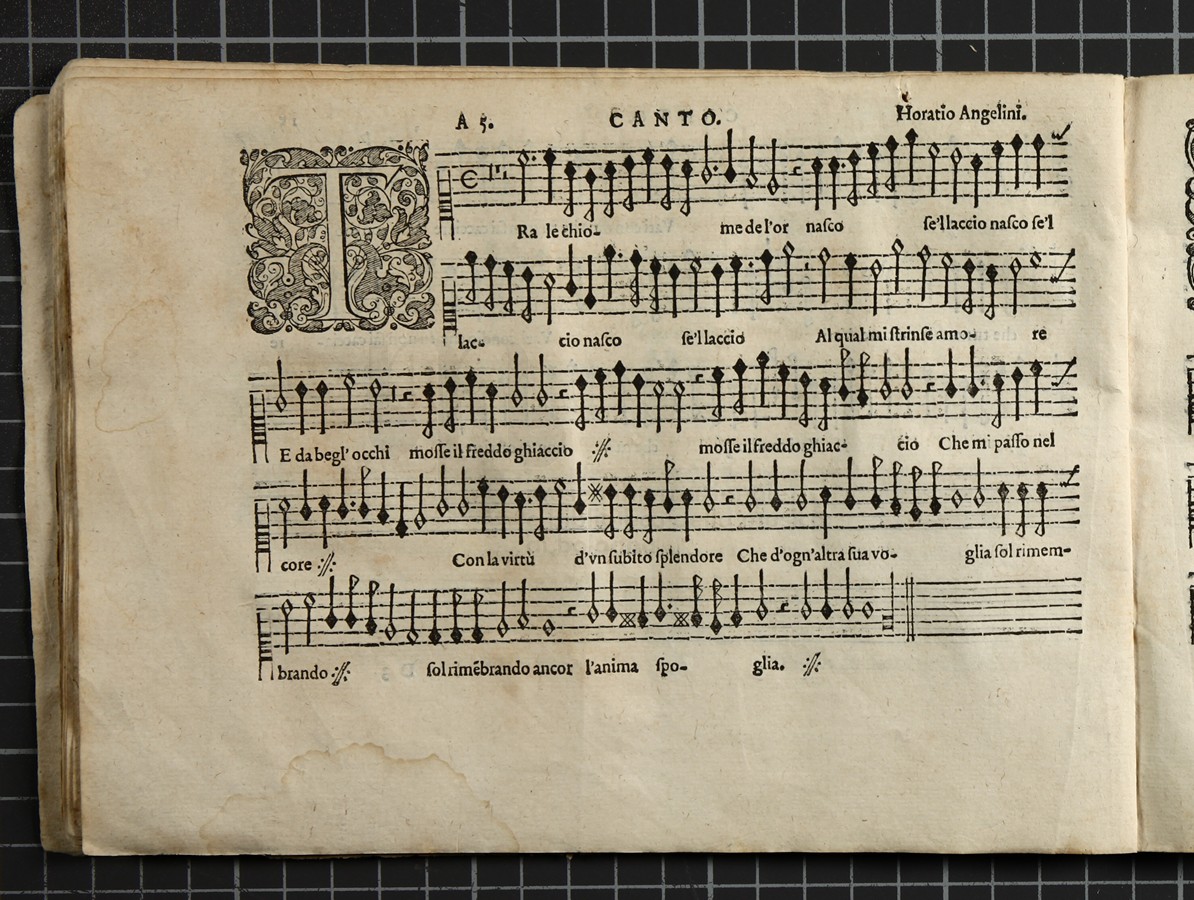 A 5. CANTO. Horatio Angelini.
T Ra le chio- me de l'or nasco se'l laccio nasco se'l
lac- cio nasco se'l laccio Al qual mi strinse amo- re
E da begl' occhi mosse il freddo ghiaccio :||: mosse il freddo ghiac- cio Che mi passo nel
core :||: Con la virtù d'vn subito splendore Che d'ogn'altra sua vo- glia sol rimem-
brando :||: sol rimẽbrando ancor l'anima spo- glia. :||: